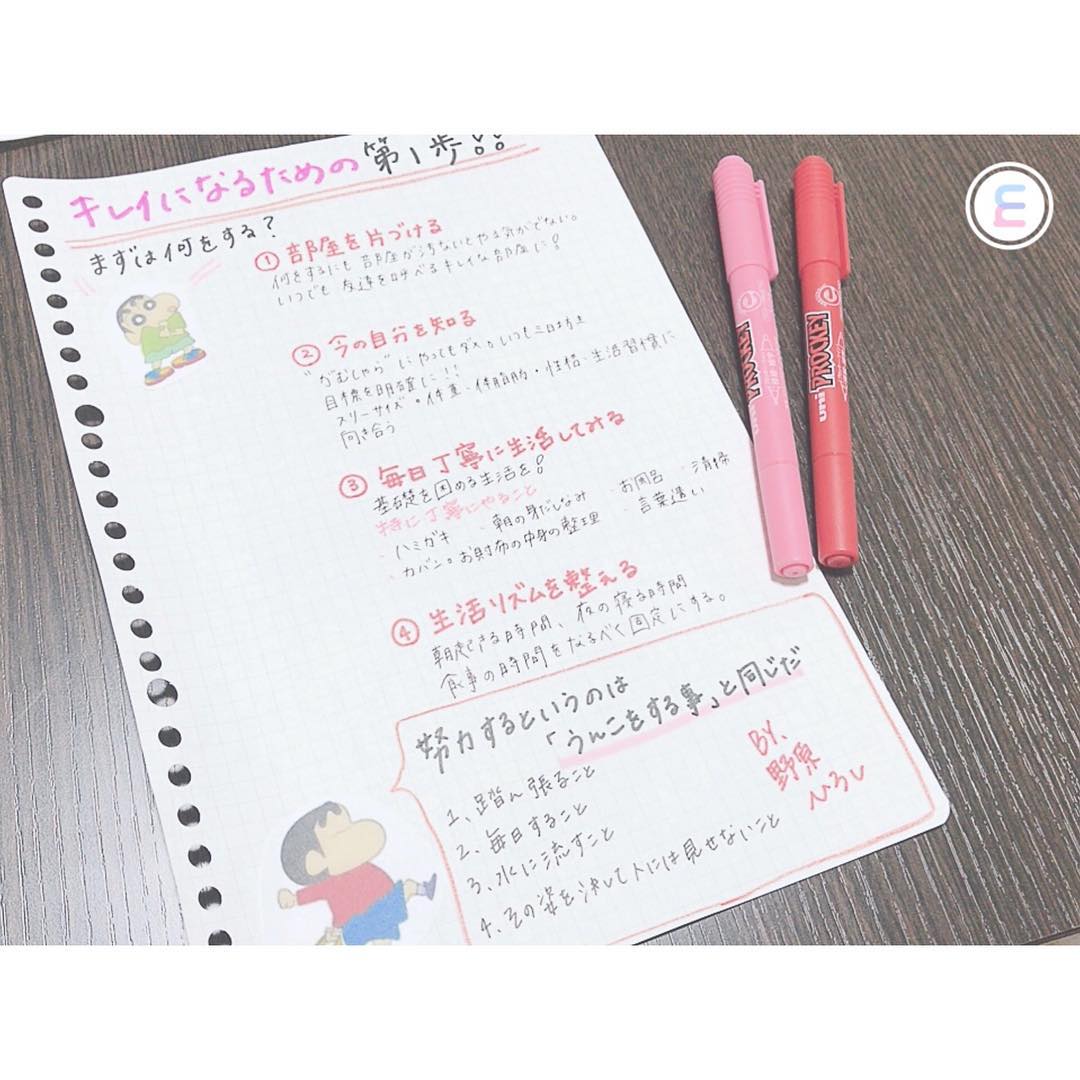 キレイになるための第1歩!!
まずは何をする?
① 部屋を片づける
何をするにも部屋が汚ないとやる気がでない。
いつでも友達を呼べるキレイな部屋に!
② 今の自分を知る
"がむしゃら"にやってもダメ。いつも三日坊主
目標を明確に!!
スリーサイズ・体重・体脂肪・性格・生活習慣に
向き合う
③ 毎日丁寧に生活してみる
基礎を固める生活を!
特に丁寧にやること
・ハミガキ ・朝の身だしなみ ・お風呂 ・清掃
・カバン。お財布の中身の整理 ・言葉遣い
④ 生活リズムを整える
朝起きる時間、夜の寝る時間
食事の時間をなるべく固定にする。
努力するというのは
「うんこをする事」と同じだ
1、踏ん張ること
2、毎日すること
3、水に流すこと
4、その姿を決して人には見せないこと
BY、
野原
ひろし
uni PROCKEY
uni PROCKEY